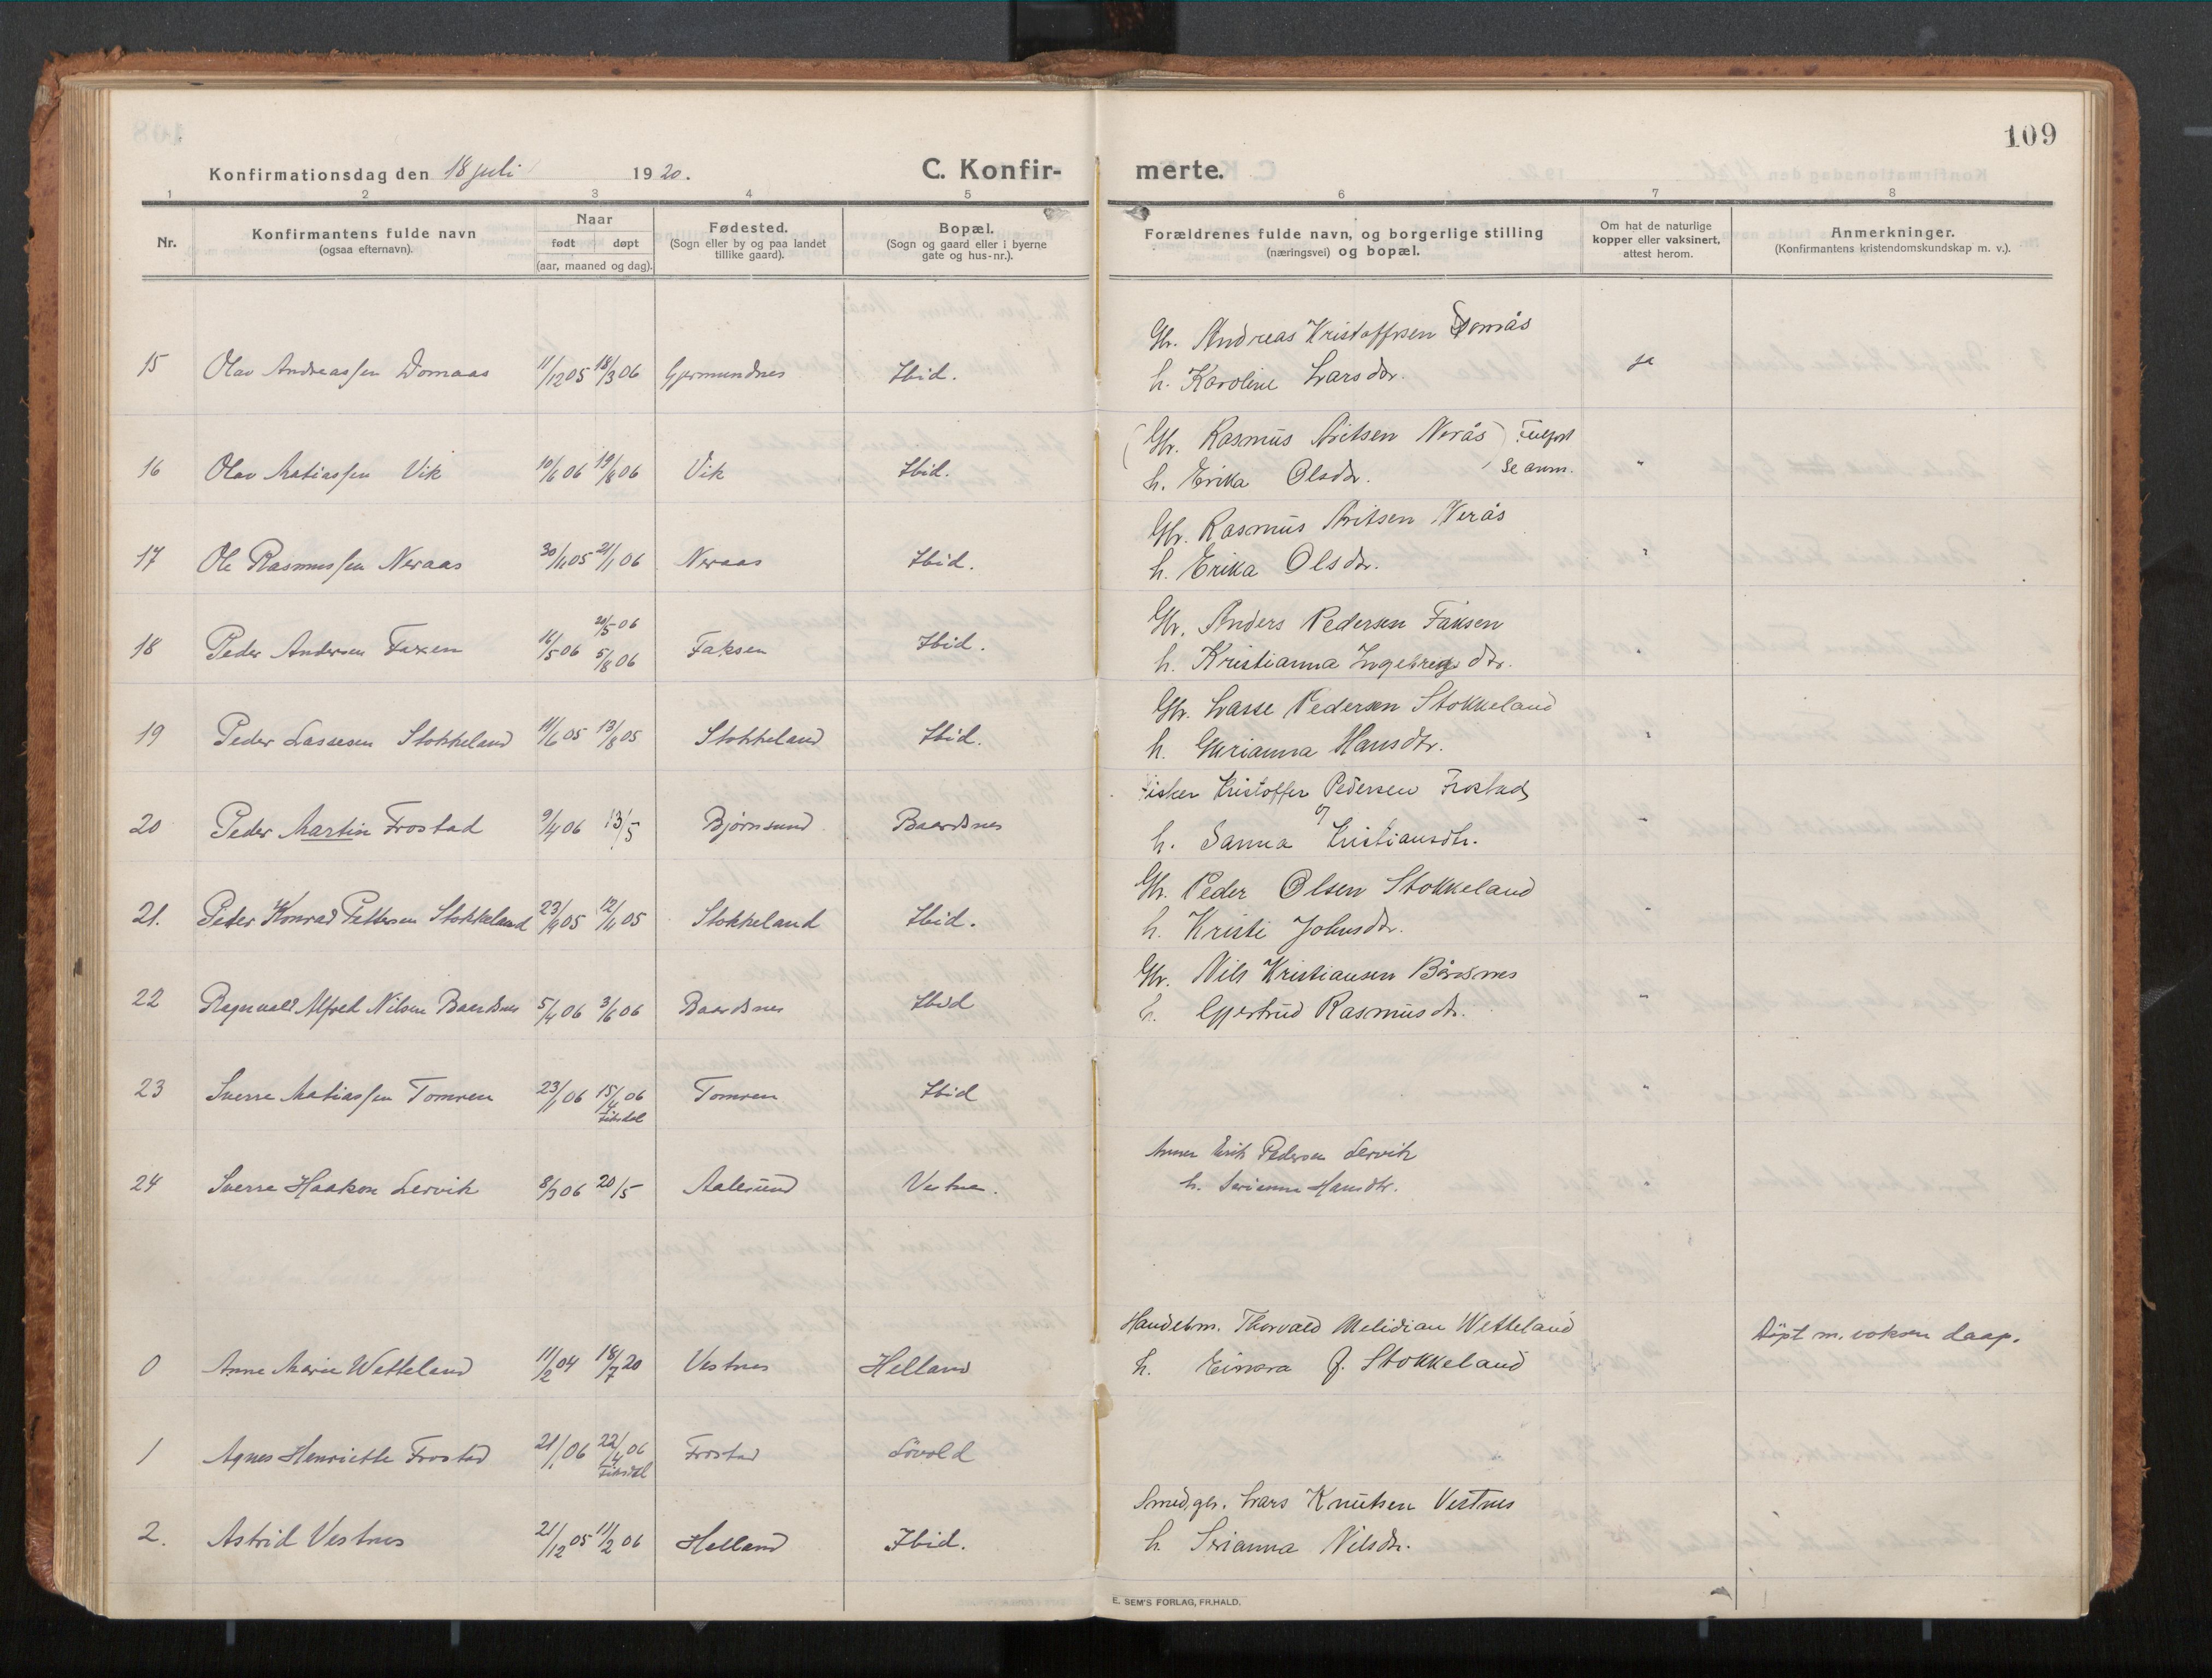 109
Konfirmationsdag den 18 juli 1920.
C. Konfir-merte.
1 2 3 4 5 6 7 8
Nr.
Konfirmantens fulde navn
(ogsaa efternavn).
Naar
født døpt
(aar, maaned og dag).
Fødested.
(Sogn eller by og paa landet
tillike gaard).
Bopæl.
(Sogn og gaard eller i byerne
gate og hus-nr.).
Forældrenes fulde navn, og borgerlige stilling
(næringsvei) og bopæl.
Om hat de naturlige
kopper eller vaksinert,
attest herom.
Anmerkninger.
(Konfirmantens kristendomskundskap m. v.).
Gbr. Andreas Kristoffersen Domås
15 Olav Andreassen Domaas 11/12 05 18/3 06 Gjermundnes Ibid. h. Karoline Larsdtr. ja
(Gbr. Rasmus Aritsen Nerås) Feilført
16 Olav Matiassen Vik 10/6 06 19/8 06 Vik Ibid. h. Erika Olsdtr. se anm. "
Gbr. Rasmus Aritsen Nerås
17 Ole Rasmussen Neraas 30/11 05 21/1 06 Neraas Ibid. h. Erika Olsdtr. "
20/5 06 Gbr. Anders Pedersen Faksen
18 Peder Andersen Faxen 16/5 06 5/8 06 Faksen Ibid. h. Kristianna Ingebrigtsdtr. "
Gbr. Lasse Pedersen Stokkeland
19 Peder Lassesen Stokkeland 11/6 05 13/8 05 Stokkeland Ibid. h. Gurianna Hansdtr. "
Fisker Kristoffer Pedersen Frostad
20 Peder Martin Frostad 9/4 06 13/5 Bjørnsund Baardsnes og h. Sanna Kristiansdtr. "
Gbr. Peder Olsen Stokkeland
21. Peder Konrad Pettersen Stokkeland 23/9 05 12/11 05 Stokkeland Ibid. h. Kristi Johnsdtr. "
Gbr. Nils Kristiansen Bårdsnes
22 Ragnvald Alfred Nilsen Baardsnes 5/4 06 3/6 06 Baardsnes Ibid h. Gjertrud Rasmusdtr. "
23 Sverre Matiassen Tomren 23/1 06 15/4 06 Tomren Ibid "
Fiksdal
Erik Pedersen Lervik
24 Sverre Haakon Lervik 8/3 06 20/5 Aalesund Vestnes. h. Serianna Hansdtr.
Handelsm. Thorvald Melidian Wetteland Døpt m. voksen daap.
0 Anne Marie Wetteland 11/2 04 18/7 20 Vestnes Helland h. Einara J. Stokkeland
1 Agnes Henriette Frostad 21/1 06 22/4 06 Frostad Løvold
Fiksdal
Smed, gbr. Lars Knutsen Vestnes
2. Astrid Vestnes 21/12 05 11/2 06 Helland Ibid. h. Serianna Nilsdtr.
E. SEM'S FORLAG, FR.HALD.